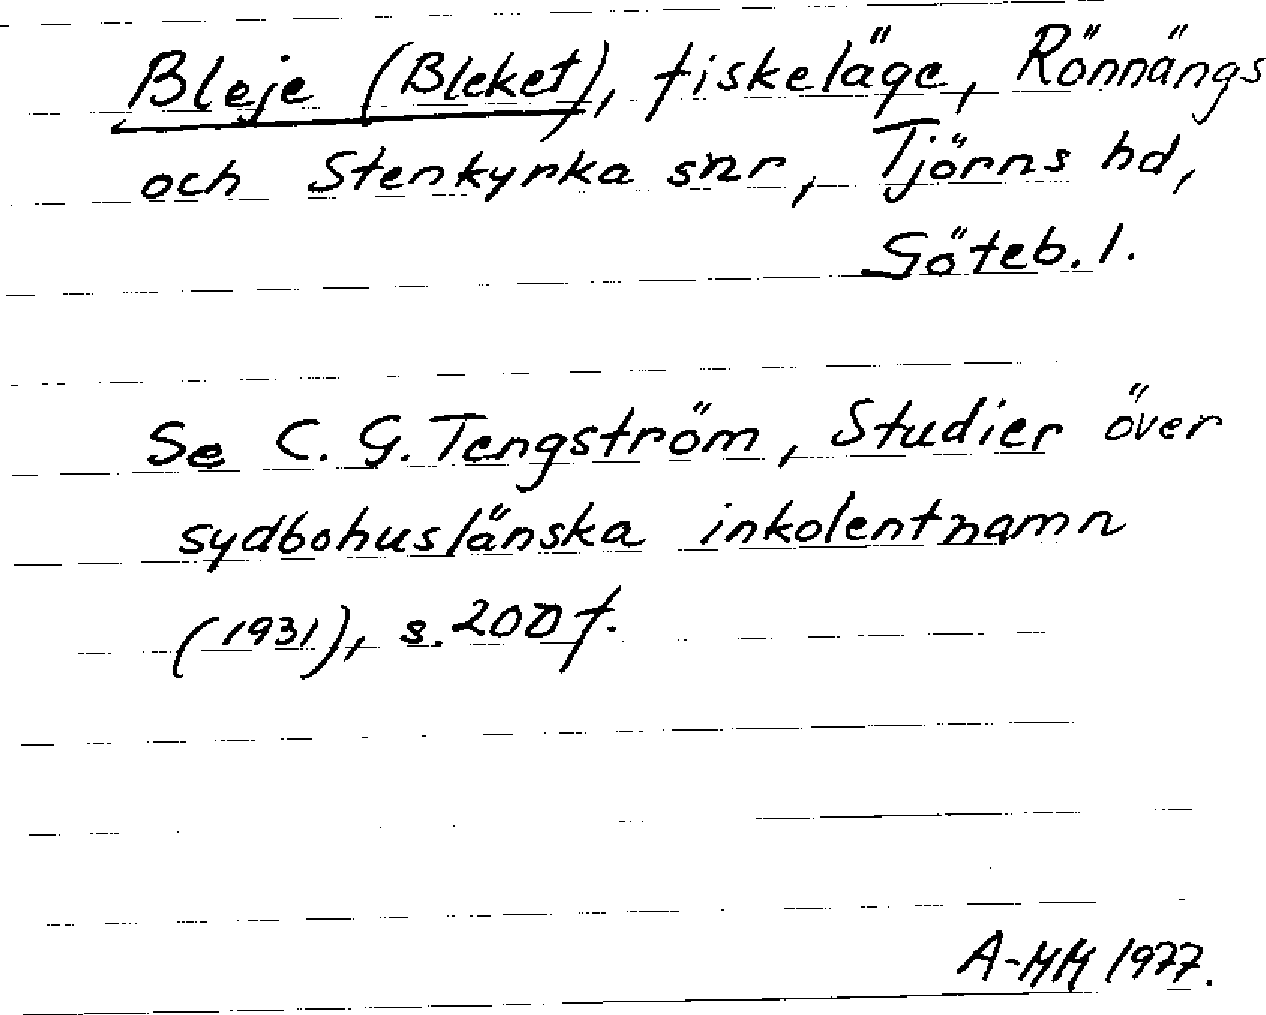 Bleje (Bleket), fiskeläge, Rönnängs
och Stenkyrka snr, Tjörns hd,
Göteb. l.
Se C. G. Tengström, Studier över
sydbohuslänska inkolentnamn
(1931), s. 200 f.
A-MM 1977.